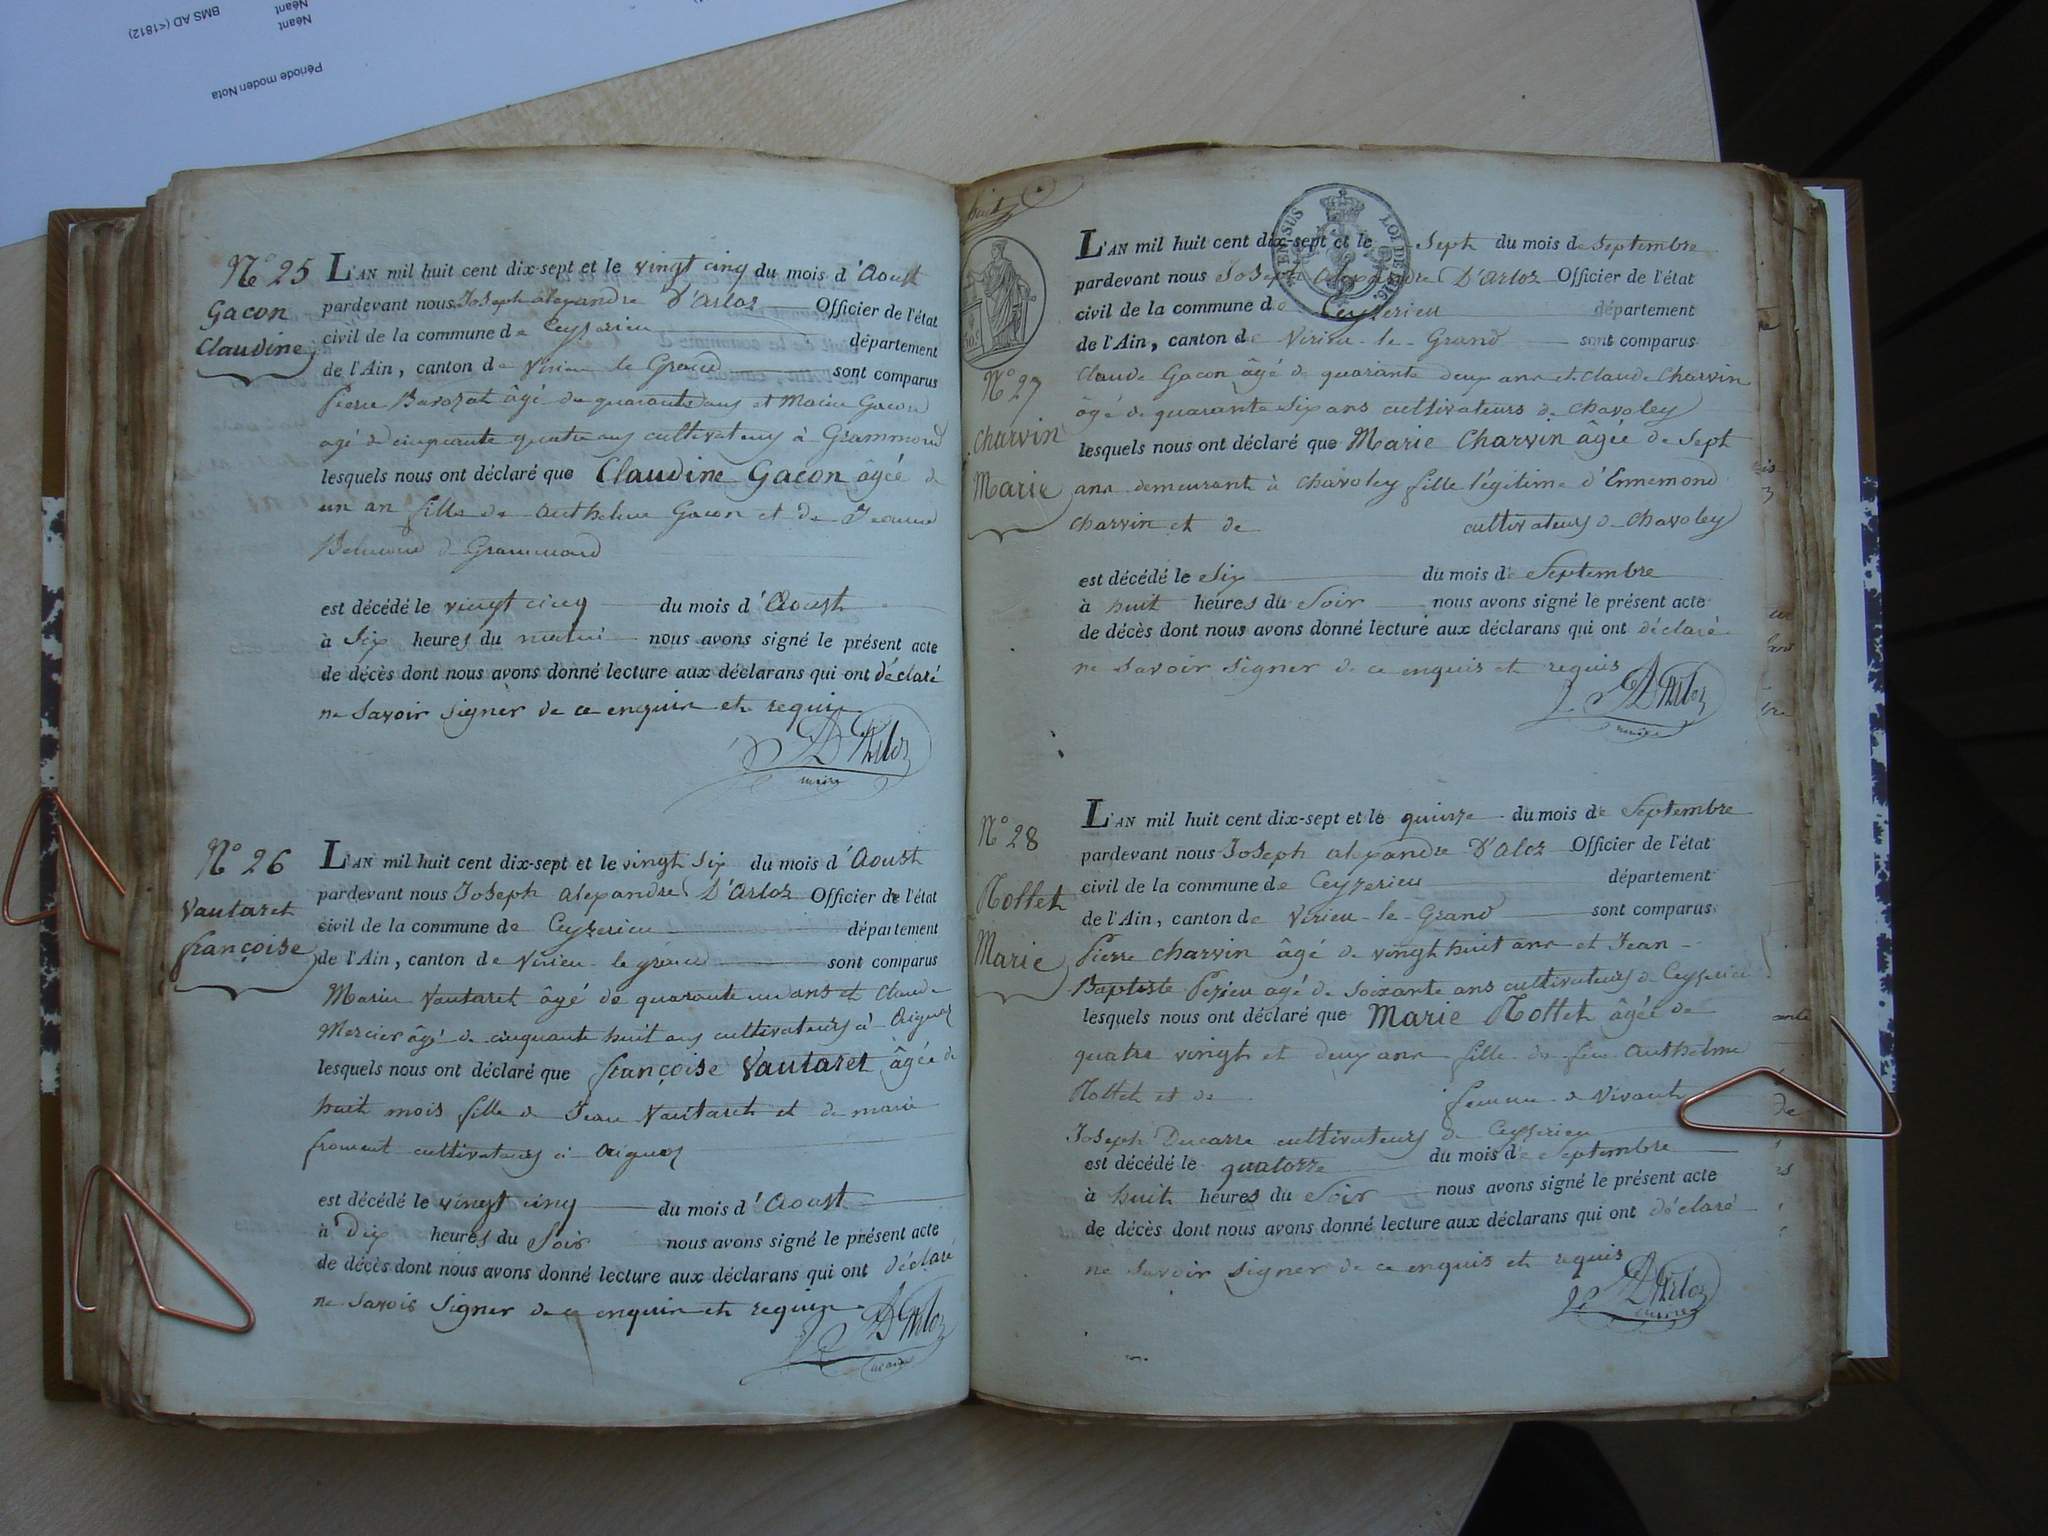 Néant
Néant
BMS AD (<1812)
Période moden Nota
N° 25
Gacon
Claudine
L'AN mil huit cent dix-sept et le vingt cinq du mois d'Aoust
pardevant nous Joseph alexandre D'Arloz Officier de l'état
civil de la commune de Ceyzerieu département
de l'Ain, canton de Virieu le Grand sont comparus
pierre Barozat âgé de quarante ans et Marin Gacon
agé de cinquante quatre ans cultivateurs à Grammond
lesquels nous ont déclaré que Claudine Gacon âgée de
un an fille de Anthelme Gacon et de Jeanne
de Grammond
est décédé le vingt cinq du mois d'Aoust
à Six heures du matin nous avons signé le présent acte
de décès dont nous avons donné lecture aux déclarans qui ont déclaré
ne Savoir Signer de ce enquis et requis
D'Arloz
maire
N° 26
Vautaret
françoise
L'AN mil huit cent dix-sept et le vingt Six du mois d'Aoust
pardevant nous Joseph alexandre D'Arloz Officier de l'état
civil de la commune de Ceyzerieu département
de l'Ain, canton de Virieu le grand sont comparus
Marin Vautaret âgé de quarante un ans et Claude
Mercier âgé de cinquante huit ans cultivateurs à Aignoz
lesquels nous ont déclaré que françoise Vautaret âgée de
huit mois fille de Jean Vautaret et de marie
froment cultivateurs à Aignoz
est décédé le vingt cinq du mois d'Aoust
à Dix heures du Soir nous avons signé le présent acte
de décès dont nous avons donné lecture aux déclarans qui ont déclaré
ne Savoir Signer de ce enquis et requis
D'Arloz
maire
huit
TIMBRE
LOI DE 1816.
N° 27
Charvin
Marie
L'AN mil huit cent dix-sept et le Sept du mois de Septembre
pardevant nous Joseph Alexandre D'Arloz Officier de l'état
civil de la commune de Ceyzerieu département
de l'Ain, canton de Virieu-le-Grand sont comparus
Claude Gacon âgé de quarante deux ans et Claude Charvin
âgé de quarante Six ans cultivateurs de Chavoley
lesquels nous ont déclaré que Marie Charvin âgée de Sept
ans demeurant à Chavoley fille légitime d'Ennemond
Charvin et de cultivateurs de Chavoley
est décédé le Six du mois de Septembre
à huit heures du Soir nous avons signé le présent acte
de décès dont nous avons donné lecture aux déclarans qui ont déclaré
ne Savoir Signer de ce enquis et requis
D'Arloz
maire
N° 28
Rottet
Marie
L'AN mil huit cent dix-sept et le quinze du mois de Septembre
pardevant nous Joseph alexandre D'Aloz Officier de l'état
civil de la commune de Ceyzerieu département
de l'Ain, canton de Virieu-le-Grand sont comparus
Pierre Charvin âgé de vingt huit ans et Jean-
Baptiste Pezieu agé de Soixante ans cultivateurs de Ceyzerieu
lesquels nous ont déclaré que Marie Rottet âgée de
quatre vingt et deux ans fille de feu Anthelme
Rottet et de femme de vivant
Joseph Ducarre cultivateurs de Ceyzerieu
est décédé le quatorze du mois de Septembre
à huit heures du Soir nous avons signé le présent acte
de décès dont nous avons donné lecture aux déclarans qui ont déclaré
ne Savoir Signer de ce enquis et requis
D'Arloz
maire